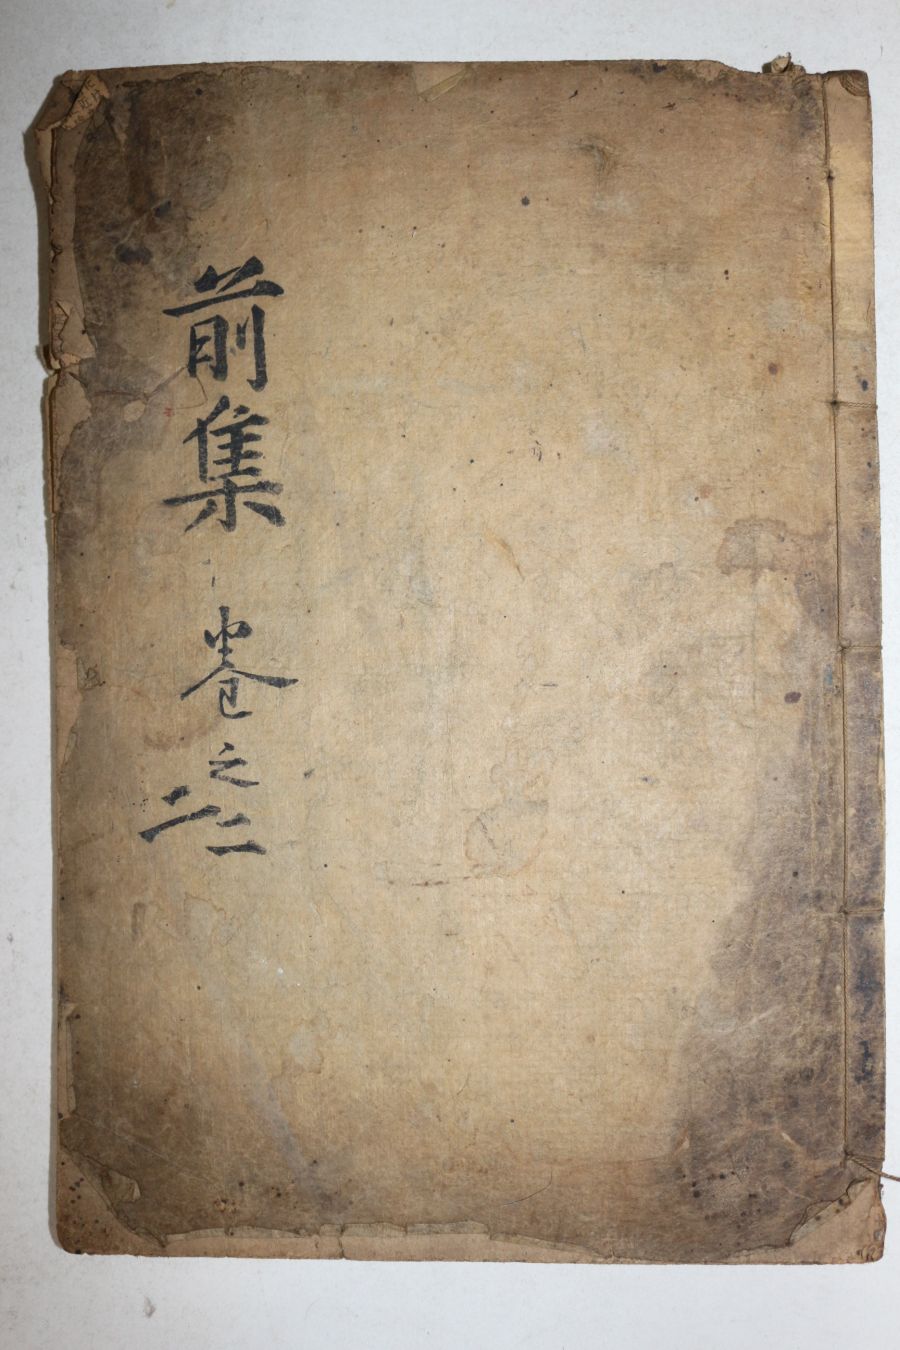 前集 卷之二二